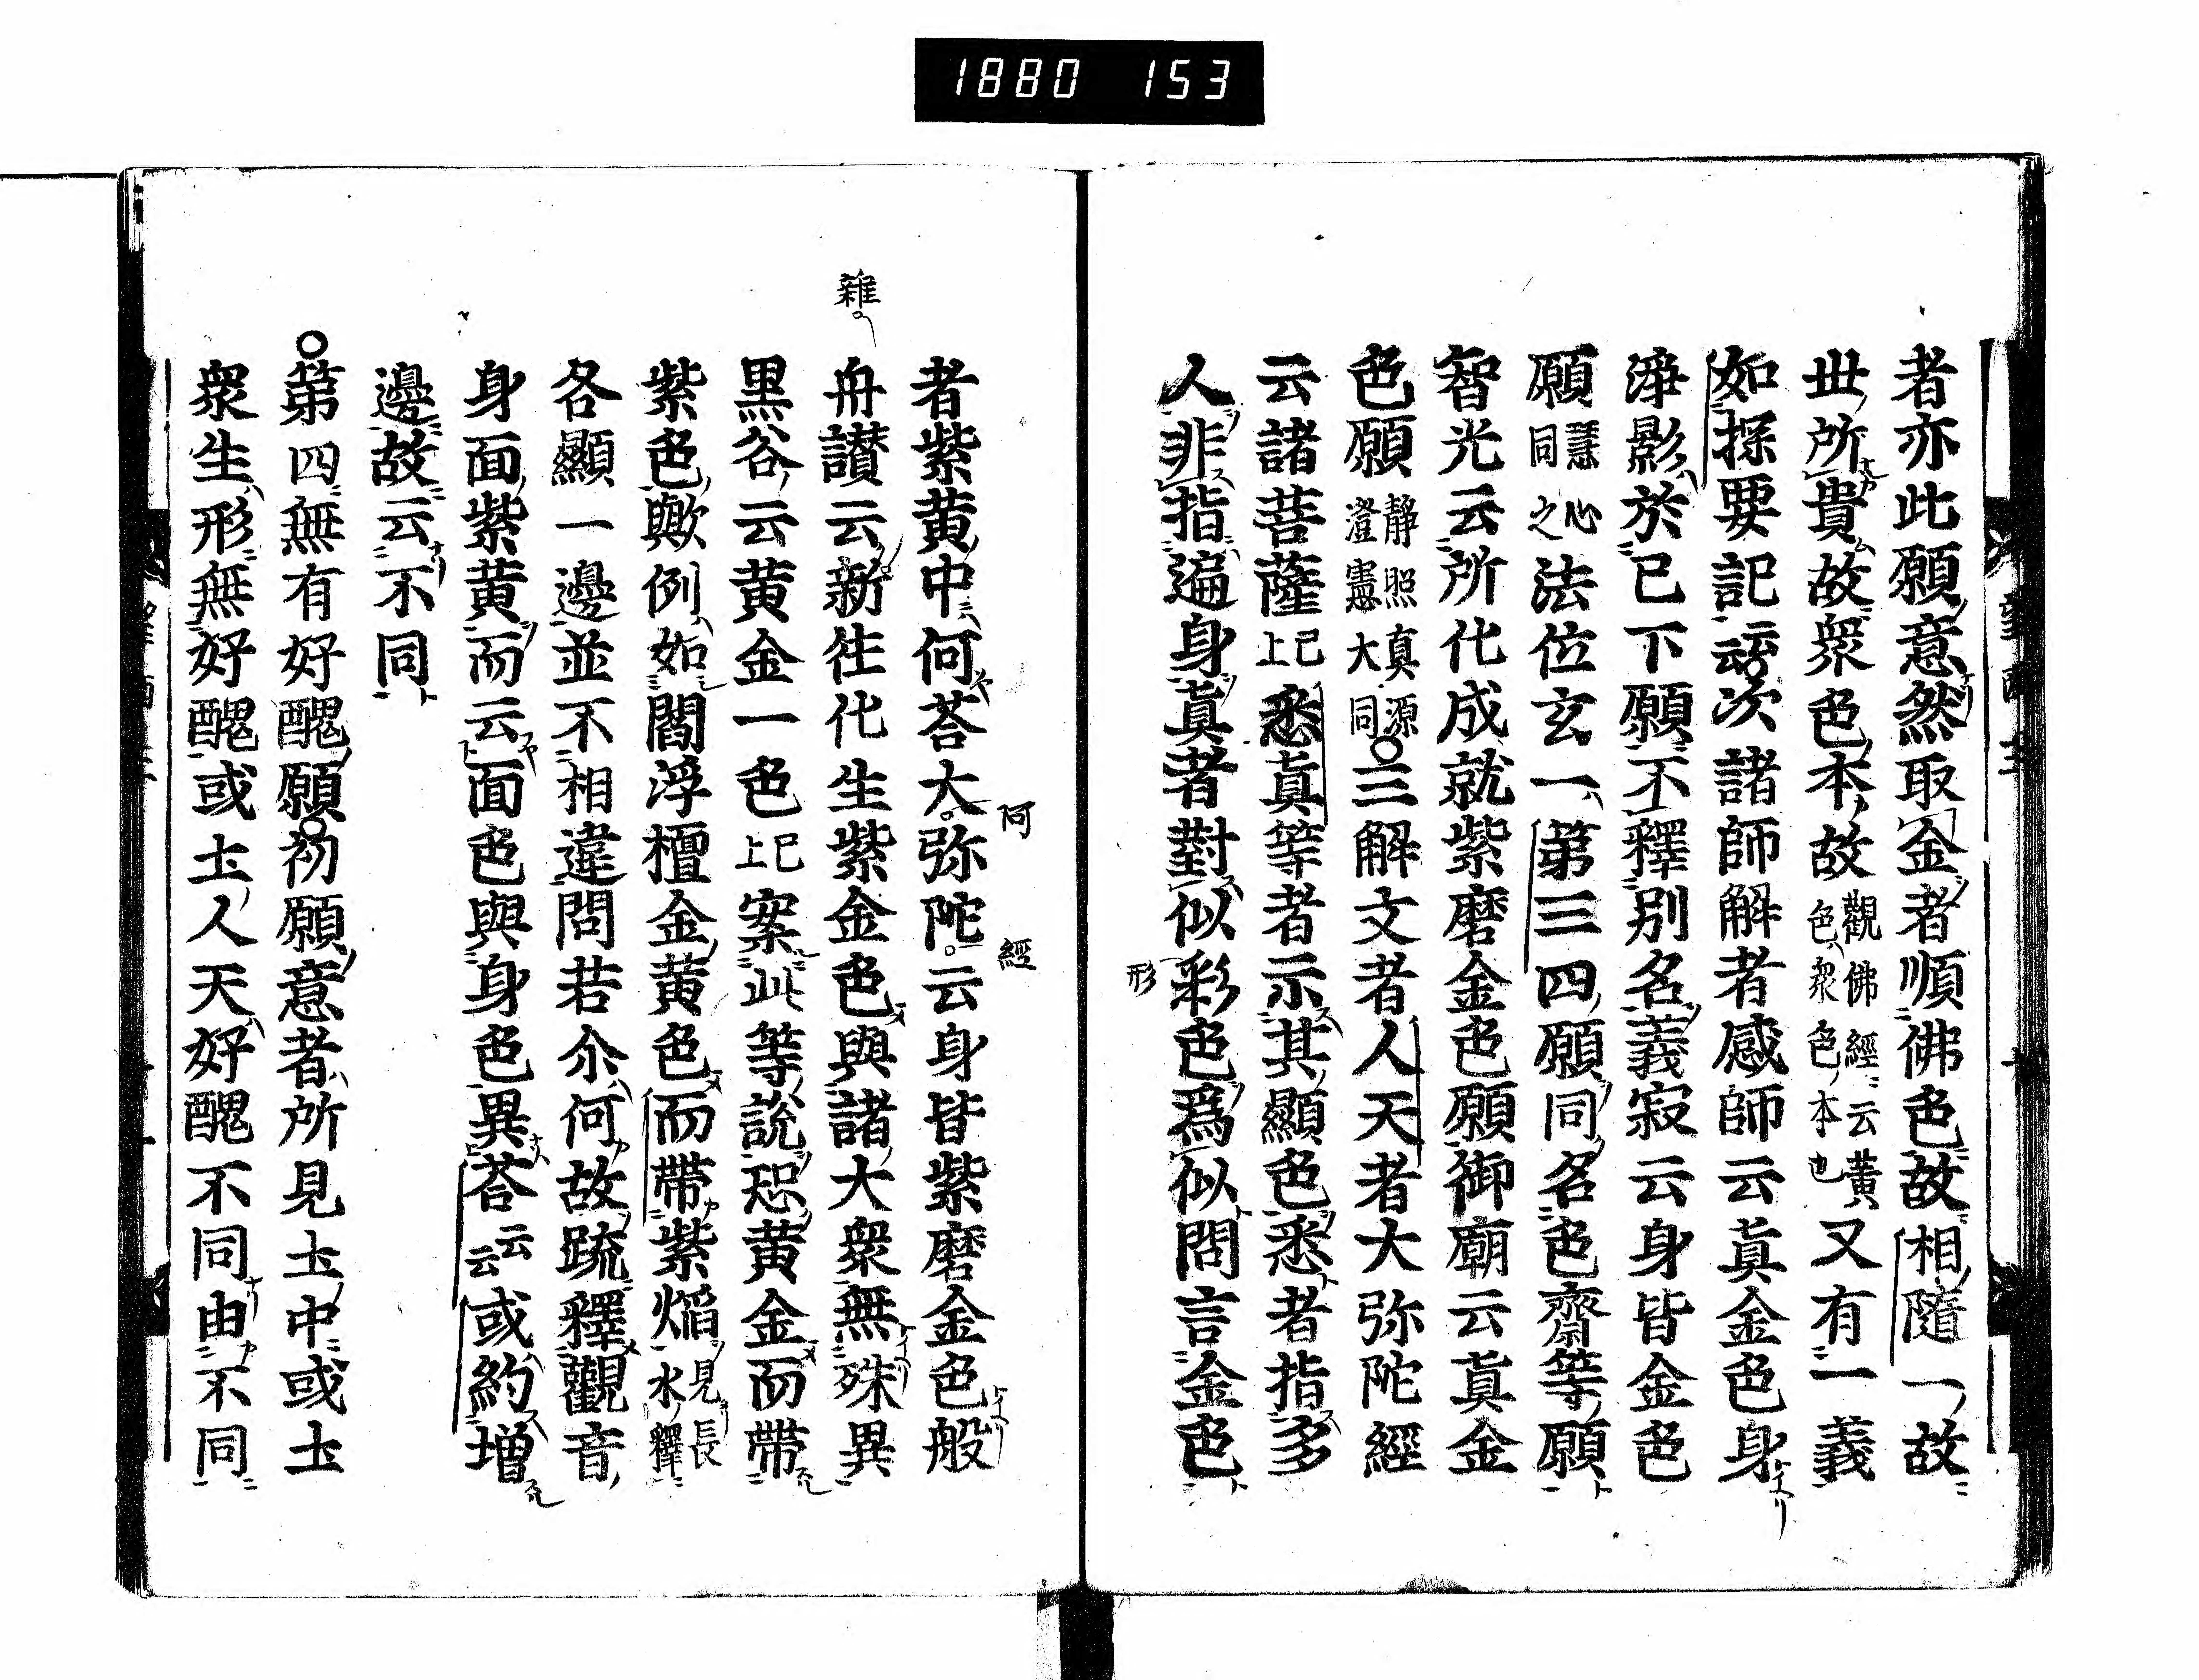 1880 153
者亦此願意然取金者順佛色故相隨一故
世所貴故衆色本故觀佛經云黃色衆色本也又有一義
如探要記云次諸師解者感師云眞金色身
淨影於已下願不釋別名義寂云身皆金色
願慧心同之法位玄一第三四願同名色齊等願
智光云所化成就紫磨金色願御廟云眞金
色願靜照真源澄憲大同三解文者人天者大弥陀經
云諸菩薩已上悉眞等者示其顯色悉者指多
人非指遍身眞者對似彩色爲似問言金色
形
者紫黃中何荅大弥陀云身皆紫磨金色般
阿
經
舟讃云新往化生紫金色與諸大衆無殊異
雜
黒谷云黄金一色已上案此等說恐黄金而帶
紫色歟例如閻浮檀金黄色而帶紫焔見長水釋
各顯一邊並不相違問若尒何故䟽釋觀音
身面紫黄而云面色與身色異荅云云或約増
邊故云不同
第四無有好醜願初願意者所見土中或土
衆生形無好醜或土人天好醜不同由不同